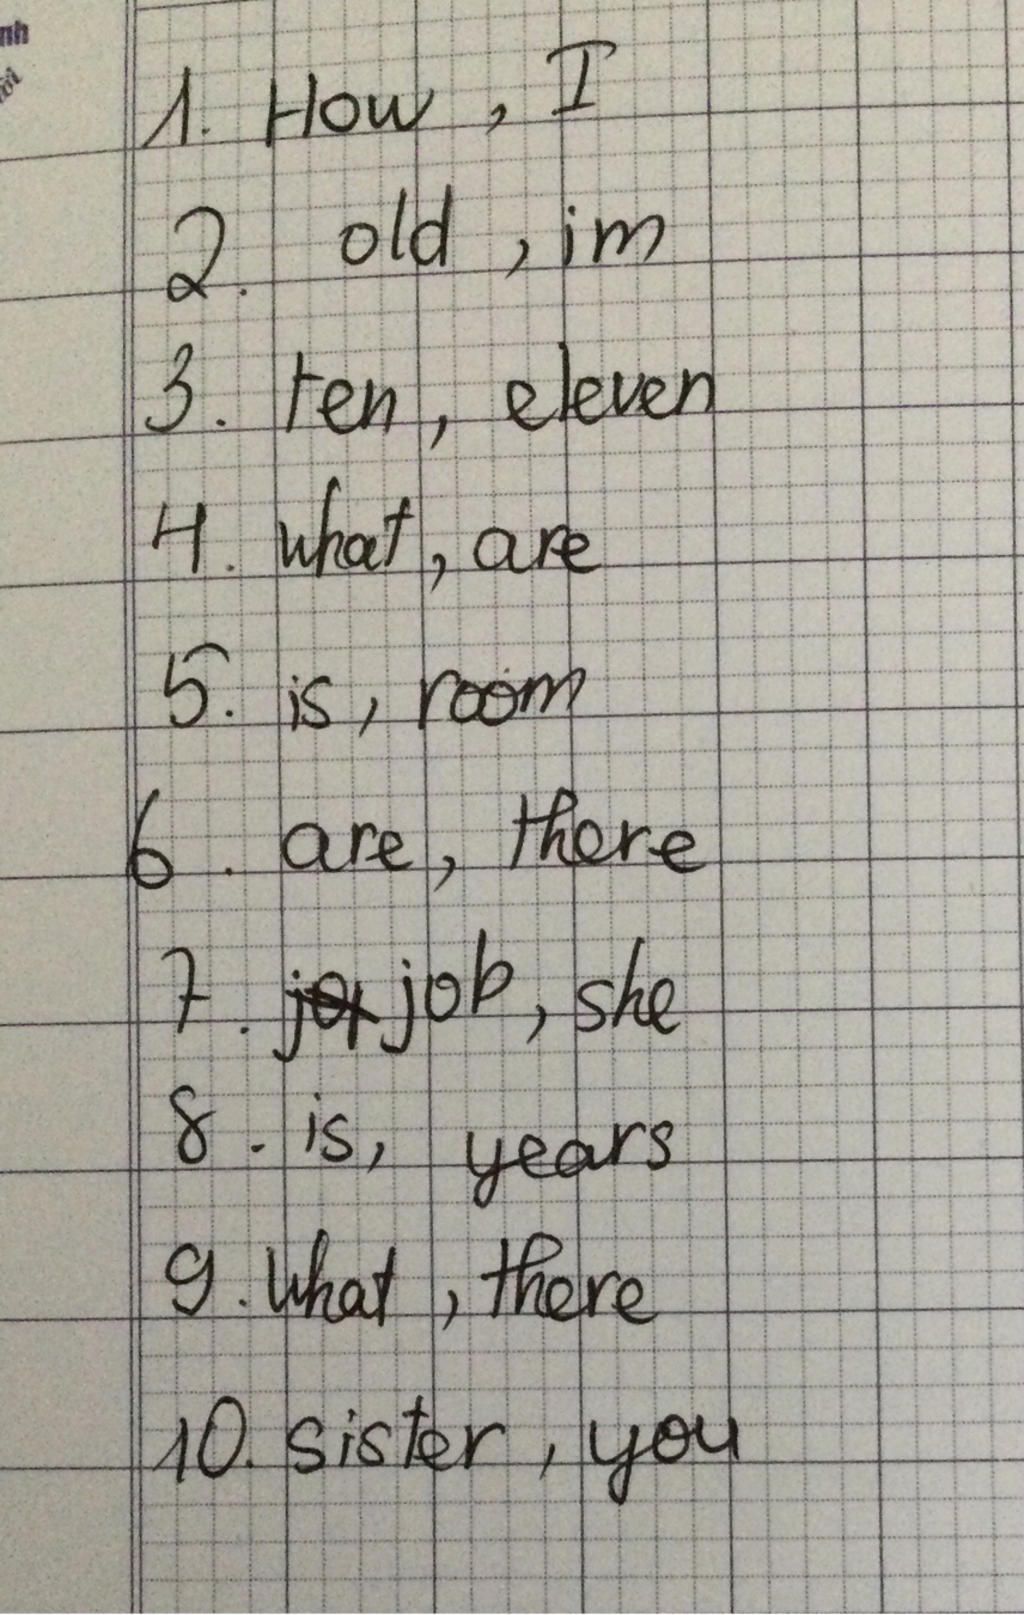 nh
1. How, I
2. old, im
3. ten, eleven
4. what, are
5. is, room
6. are, there
7. job, she
8. is, years
9. what, there
10. sister, you